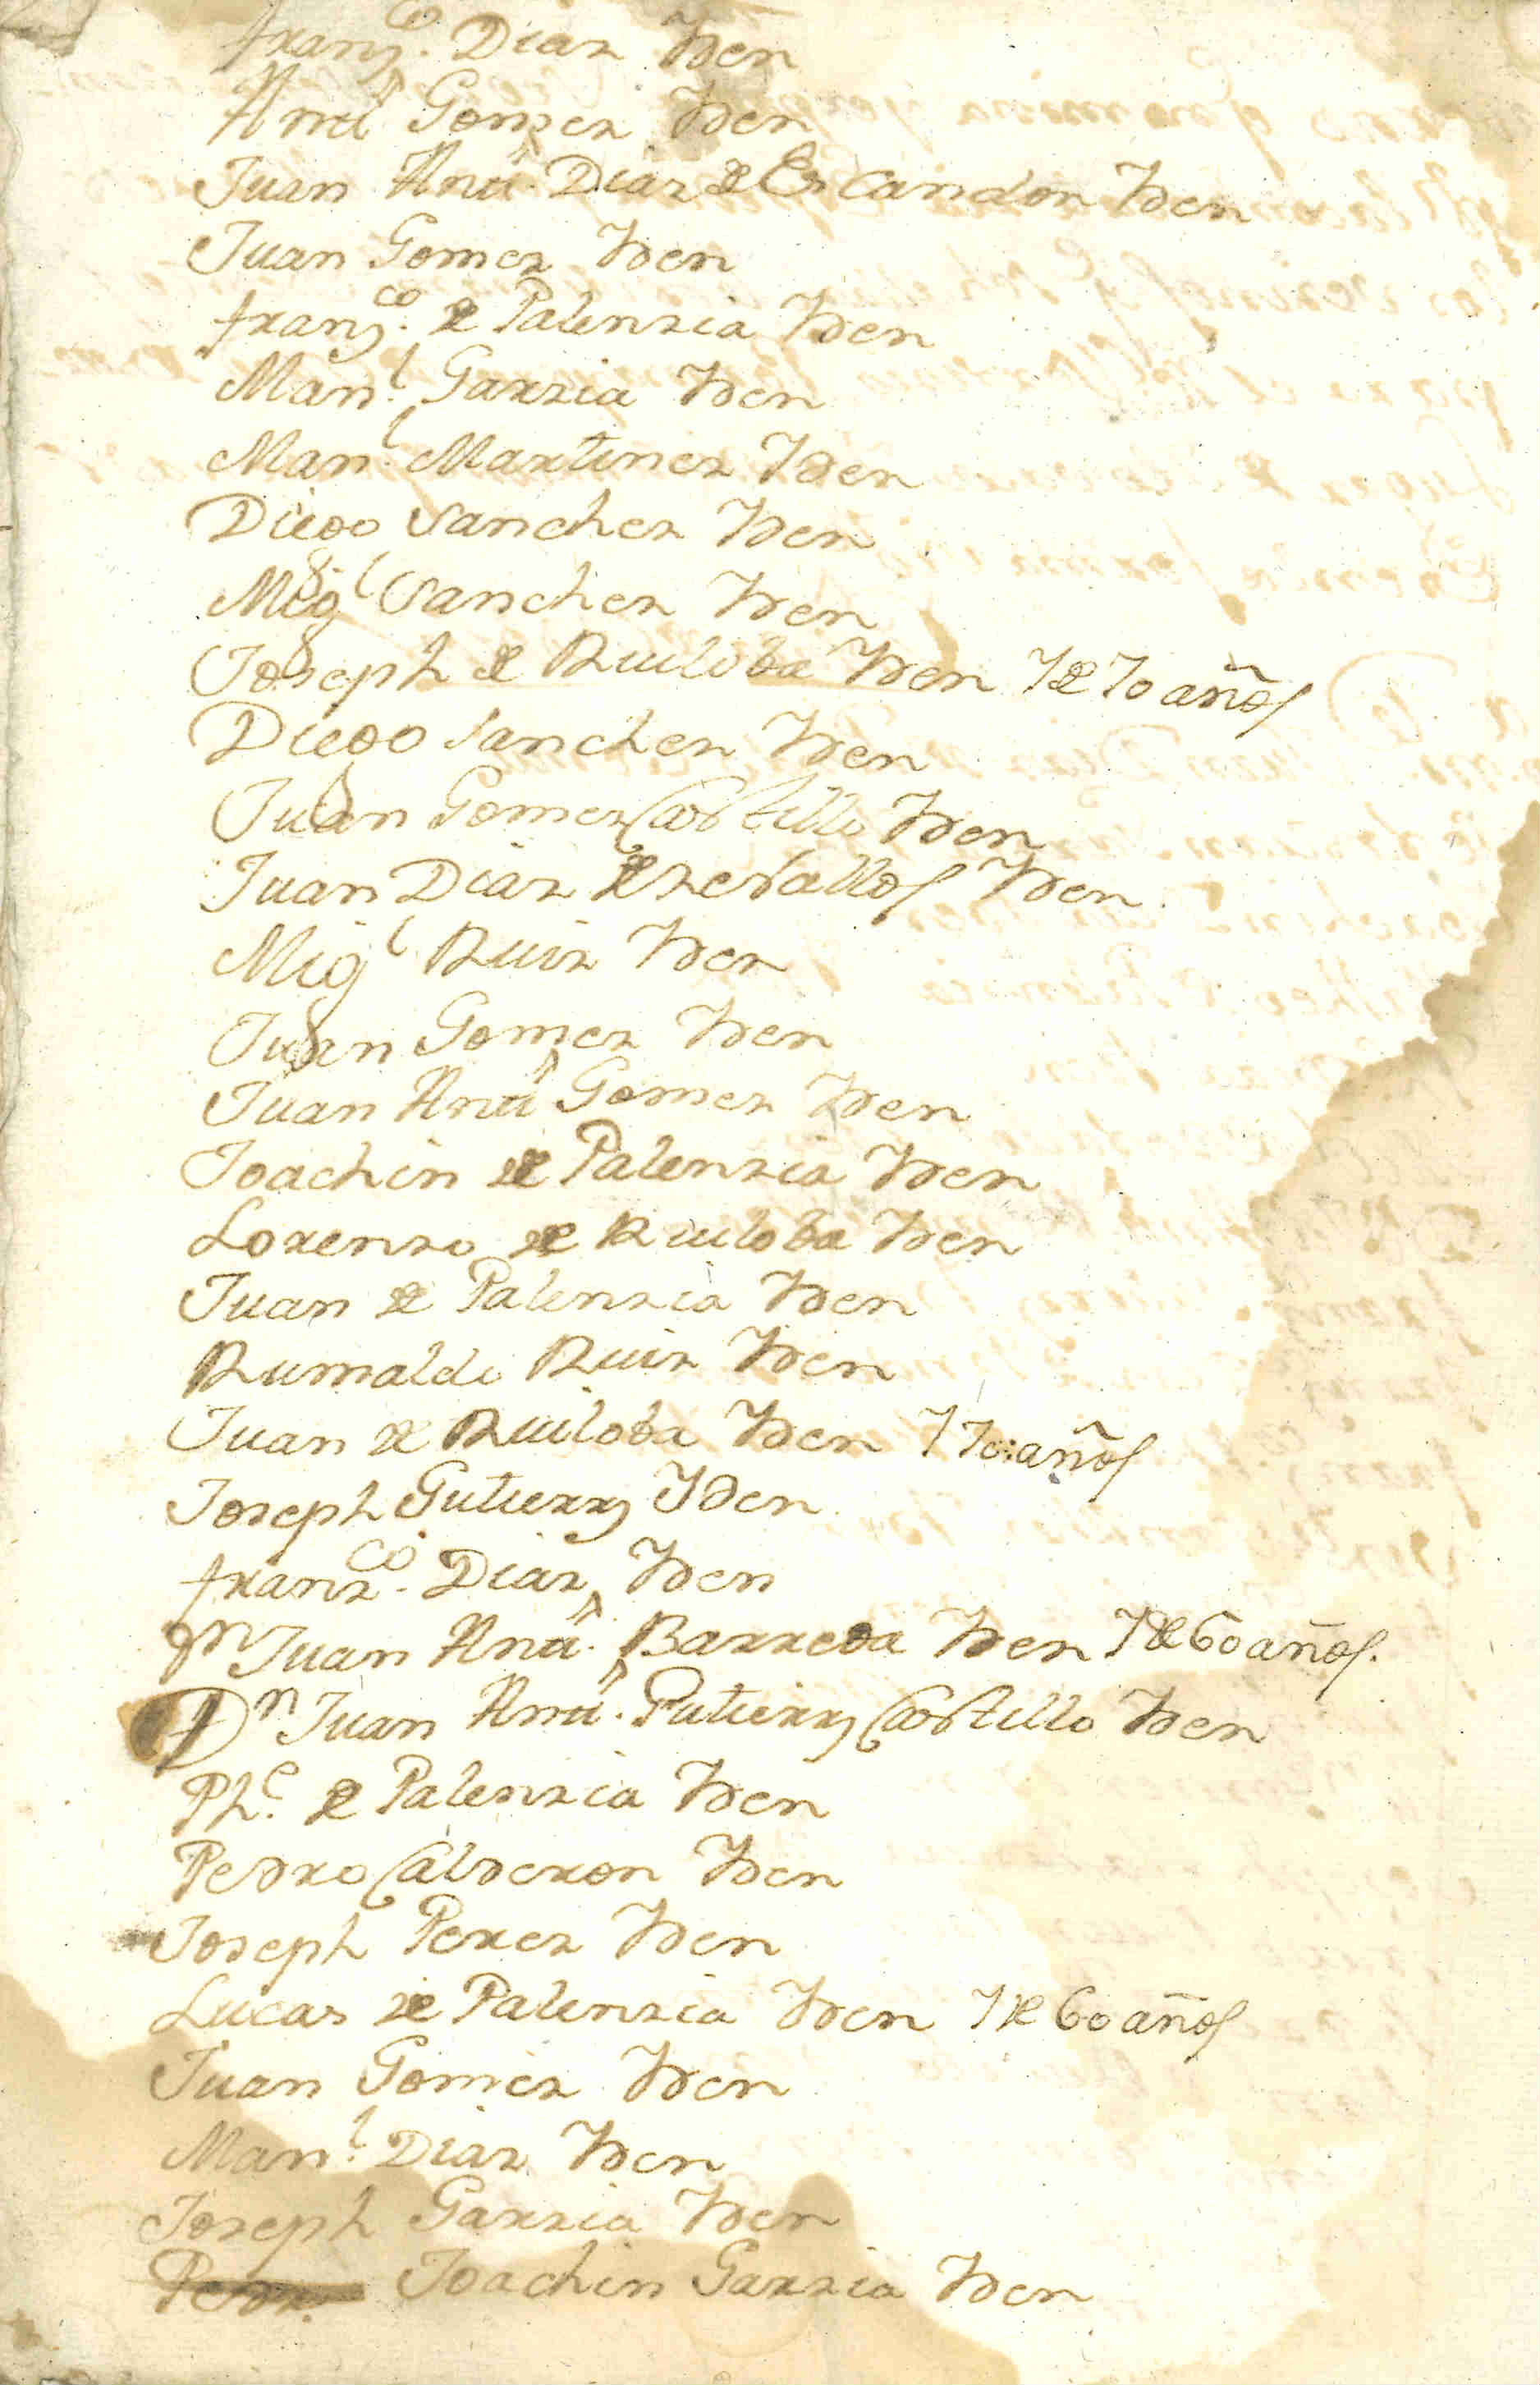 Franzco. Diaz Yden
Antto Gomez Yden
Juan Antto. Diaz de Escandon Yden
Juan Gomez Yden
franzco. de Palenzia Yden
Manl. Garzia Yden
Manl. Martinez Yden
Diego Sanchez Yden
Migl Sanchez Yden
Joseph de Ruiloba Yden Y de 70 años
Diego Sanchez Yden
Juan Gomez Castillo Yden
Juan Diaz de zeballos Yden
Migl Ruiz Yden
Juan Gomez Yden
Juan Antto Gomez Yden
Joachin de Palenzia Yden
Lorenzo de Ruiloba Yden
Juan de Palenzia Yden
Rumaldo Ruiz Yden
Juan de Ruiloba Yden Y 70 años
Joseph Gutierrz Yden
franzco. Diaz Yden
Dn Juan Antto. Barreda Yden Y de 60 años.
Dn Juan Antto. Gutierrz Castillo Yden
Phe. de Palenzia Yden
Pedro Calderon Yden
Joseph Perez Yden
Lucas de Palenzia Yden Y de 60 años
Juan Gomez Yden
Manl. Diaz Yden
Joseph Garzia Yden
Pedr. Joachin Garzia Yden